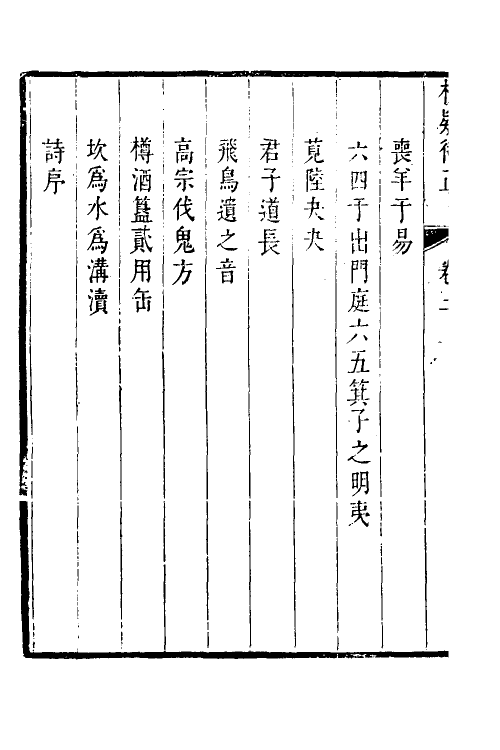 喪羊于易
六四于出門庭六五箕子之明夷
莧陸夬夬
君子道長
飛鳥遺之音
高宗伐鬼方
樽酒簋貳用缶
坎為水為溝瀆
詩序